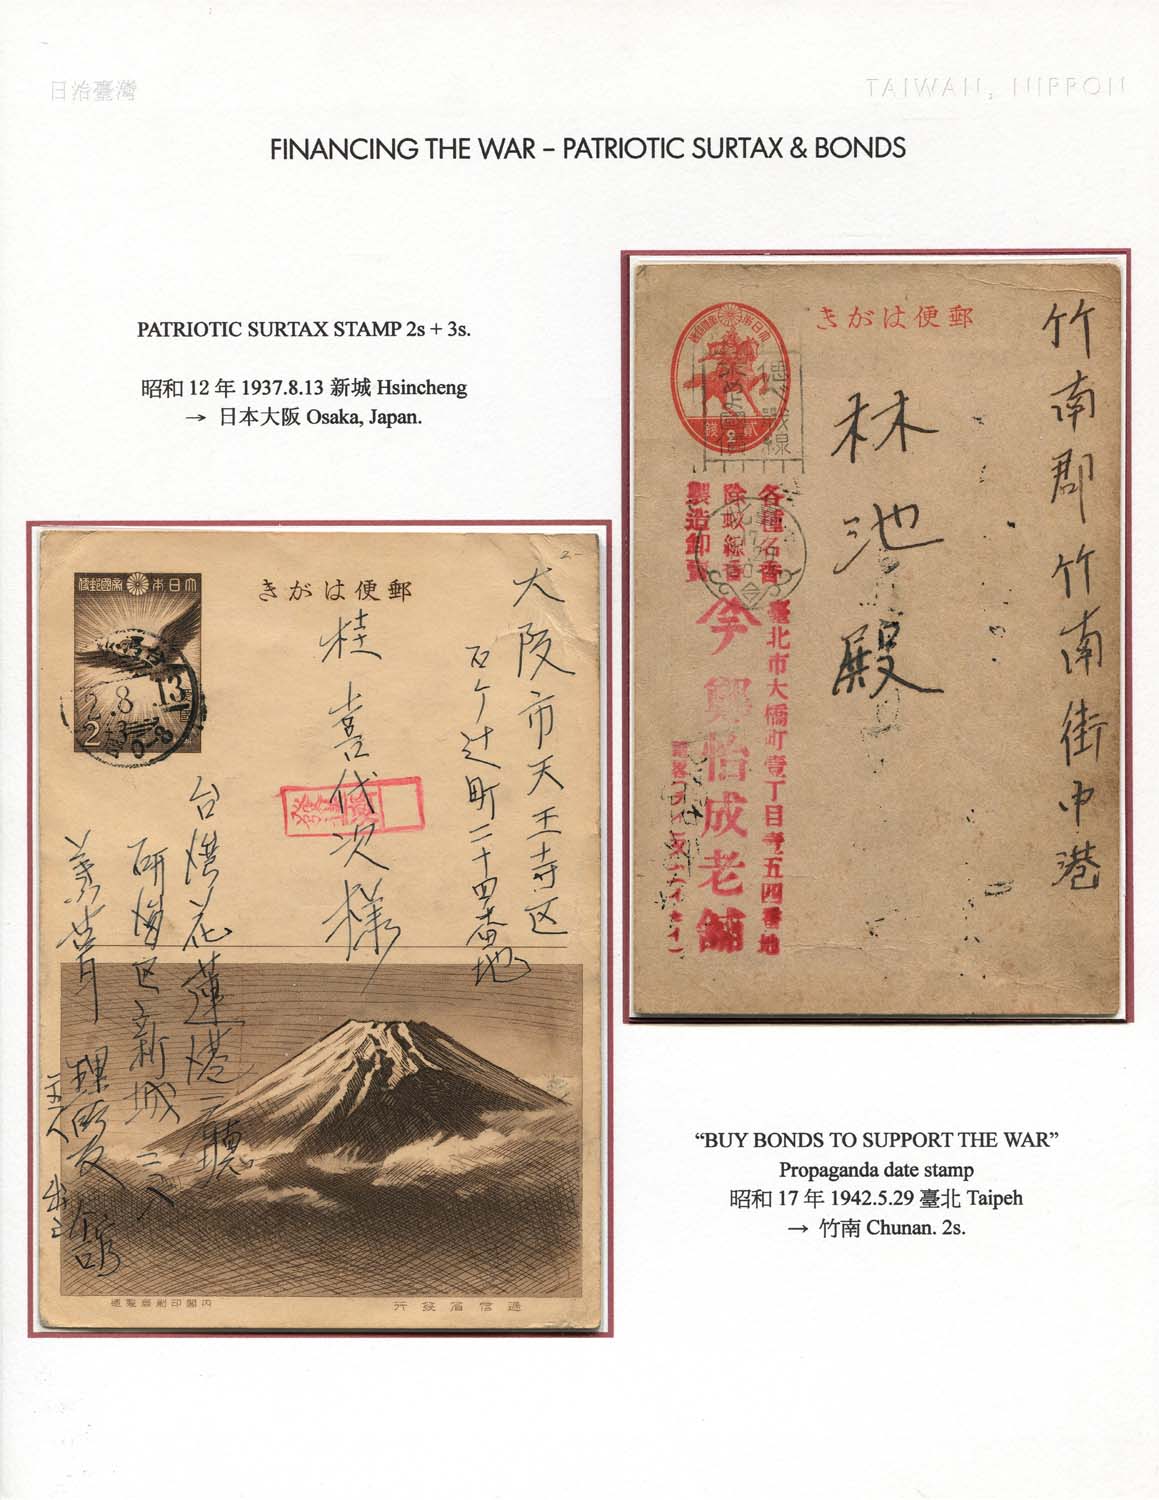 日治臺灣
TAIWAN, NIPPON
FINANCING THE WAR – PATRIOTIC SURTAX & BONDS
PATRIOTIC SURTAX STAMP 2s + 3s.
昭和 12 年 1937.8.13 新城 Hsincheng
→ 日本大阪 Osaka, Japan.
きがは便郵
大阪市天王寺区
石ケ辻町二十四番地
桂喜代次様
台灣花蓮港廳
研海区新城二八
2-
2
2.8.13
0-8
行發省信遞
内閣印刷局製造
きがは便郵
竹南郡竹南街中港
林池殿
2
偲べ戰線
求めよ國債
各種名香
除蚊線香
製造卸賣
臺北市大橋町壹丁目壹五四番地
李興怡成老舖
“BUY BONDS TO SUPPORT THE WAR”
Propaganda date stamp
昭和 17 年 1942.5.29 臺北 Taipeh
→ 竹南 Chunan. 2s.